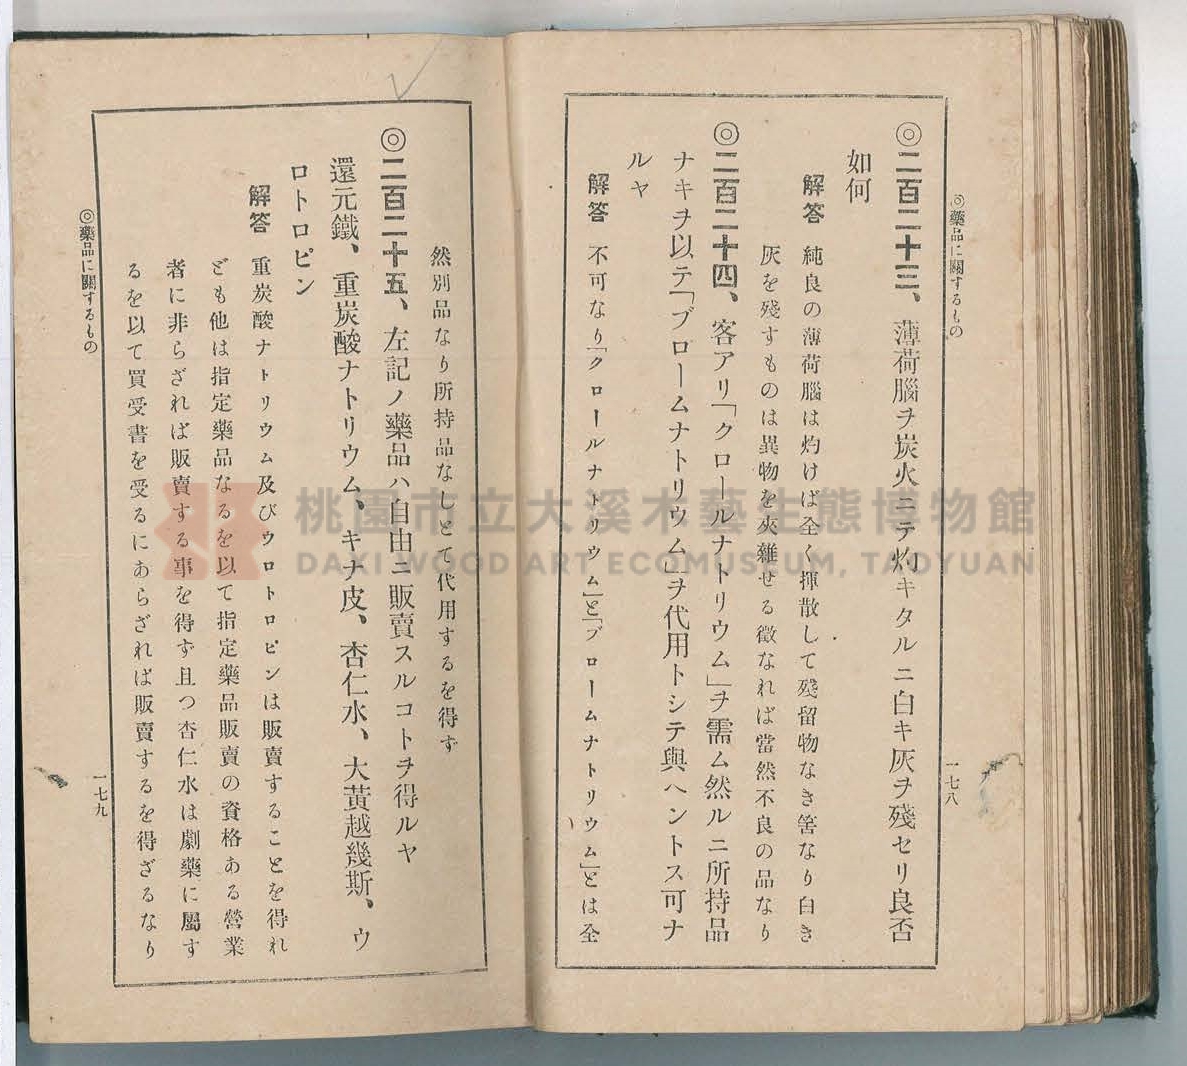 ◎藥品に關するもの
一七八
◎二百二十三、薄荷腦ヲ炭火ニテ灼キタルニ白キ灰ヲ殘セリ良否
如何
解答 純良の薄荷腦は灼けば全く揮散して殘留物なき筈なり白き
灰を殘すものは異物を夾雜せる徵なれば當然不良の品なり
◎二百二十四、客アリ「クロールナトリウム」ヲ需ム然ルニ所持品
ナキヲ以テ「ブロームナトリウム」ヲ代用トシテ與ヘントス可ナ
ルヤ
解答 不可なり「クロールナトリウム」と「ブロームナトリウム」とは全
然別品なり所持品なしとて代用するを得ず
◎二百二十五、左記ノ藥品ハ自由ニ販賣スルコトヲ得ルヤ
還元鐵、重炭酸ナトリウム、キナ皮、杏仁水、大黃越幾斯、ウ
ロトロピン
解答 重炭酸ナトリウム及びウロトロピンは販賣することを得れ
ども他は指定藥品なるを以て指定藥品販賣の資格ある營業
者に非らざれば販賣する事を得ず且つ杏仁水は劇藥に屬す
るを以て買受書を受るにあらざれば販賣するを得ざるなり
◎藥品に關するもの
一七九
桃園市立大溪木藝生態博物館
DAXI WOOD ART ECOMUSEUM, TAOYUAN